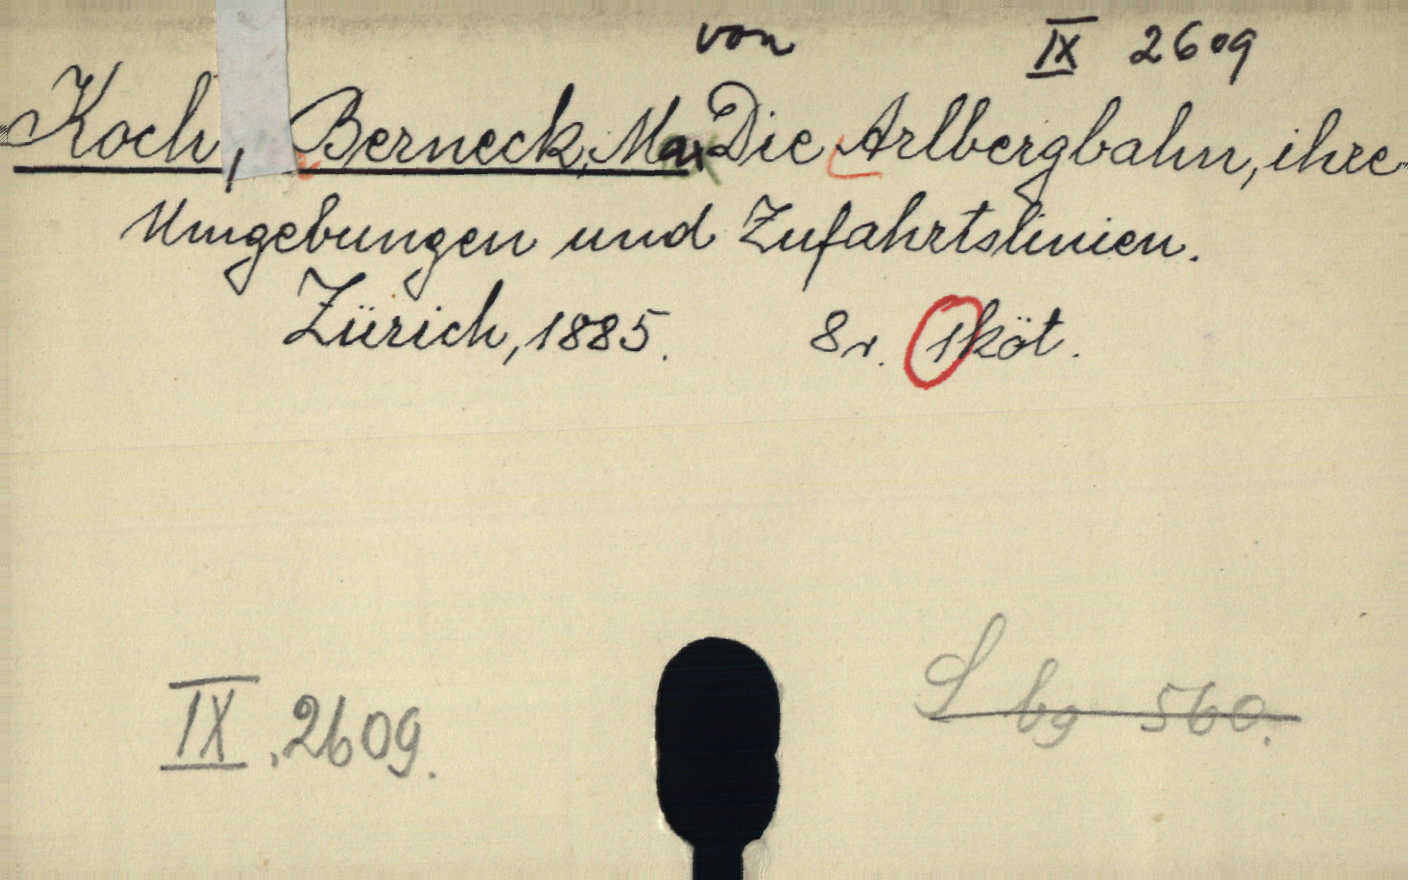 von IX 2609
Koch, Berneck, Max Die Arlbergbahn, ihre
Umgebungen und Zufahrtslinien.
Zürich, 1885. 8r. 1 köt.
IX. 2609.
bg 560.